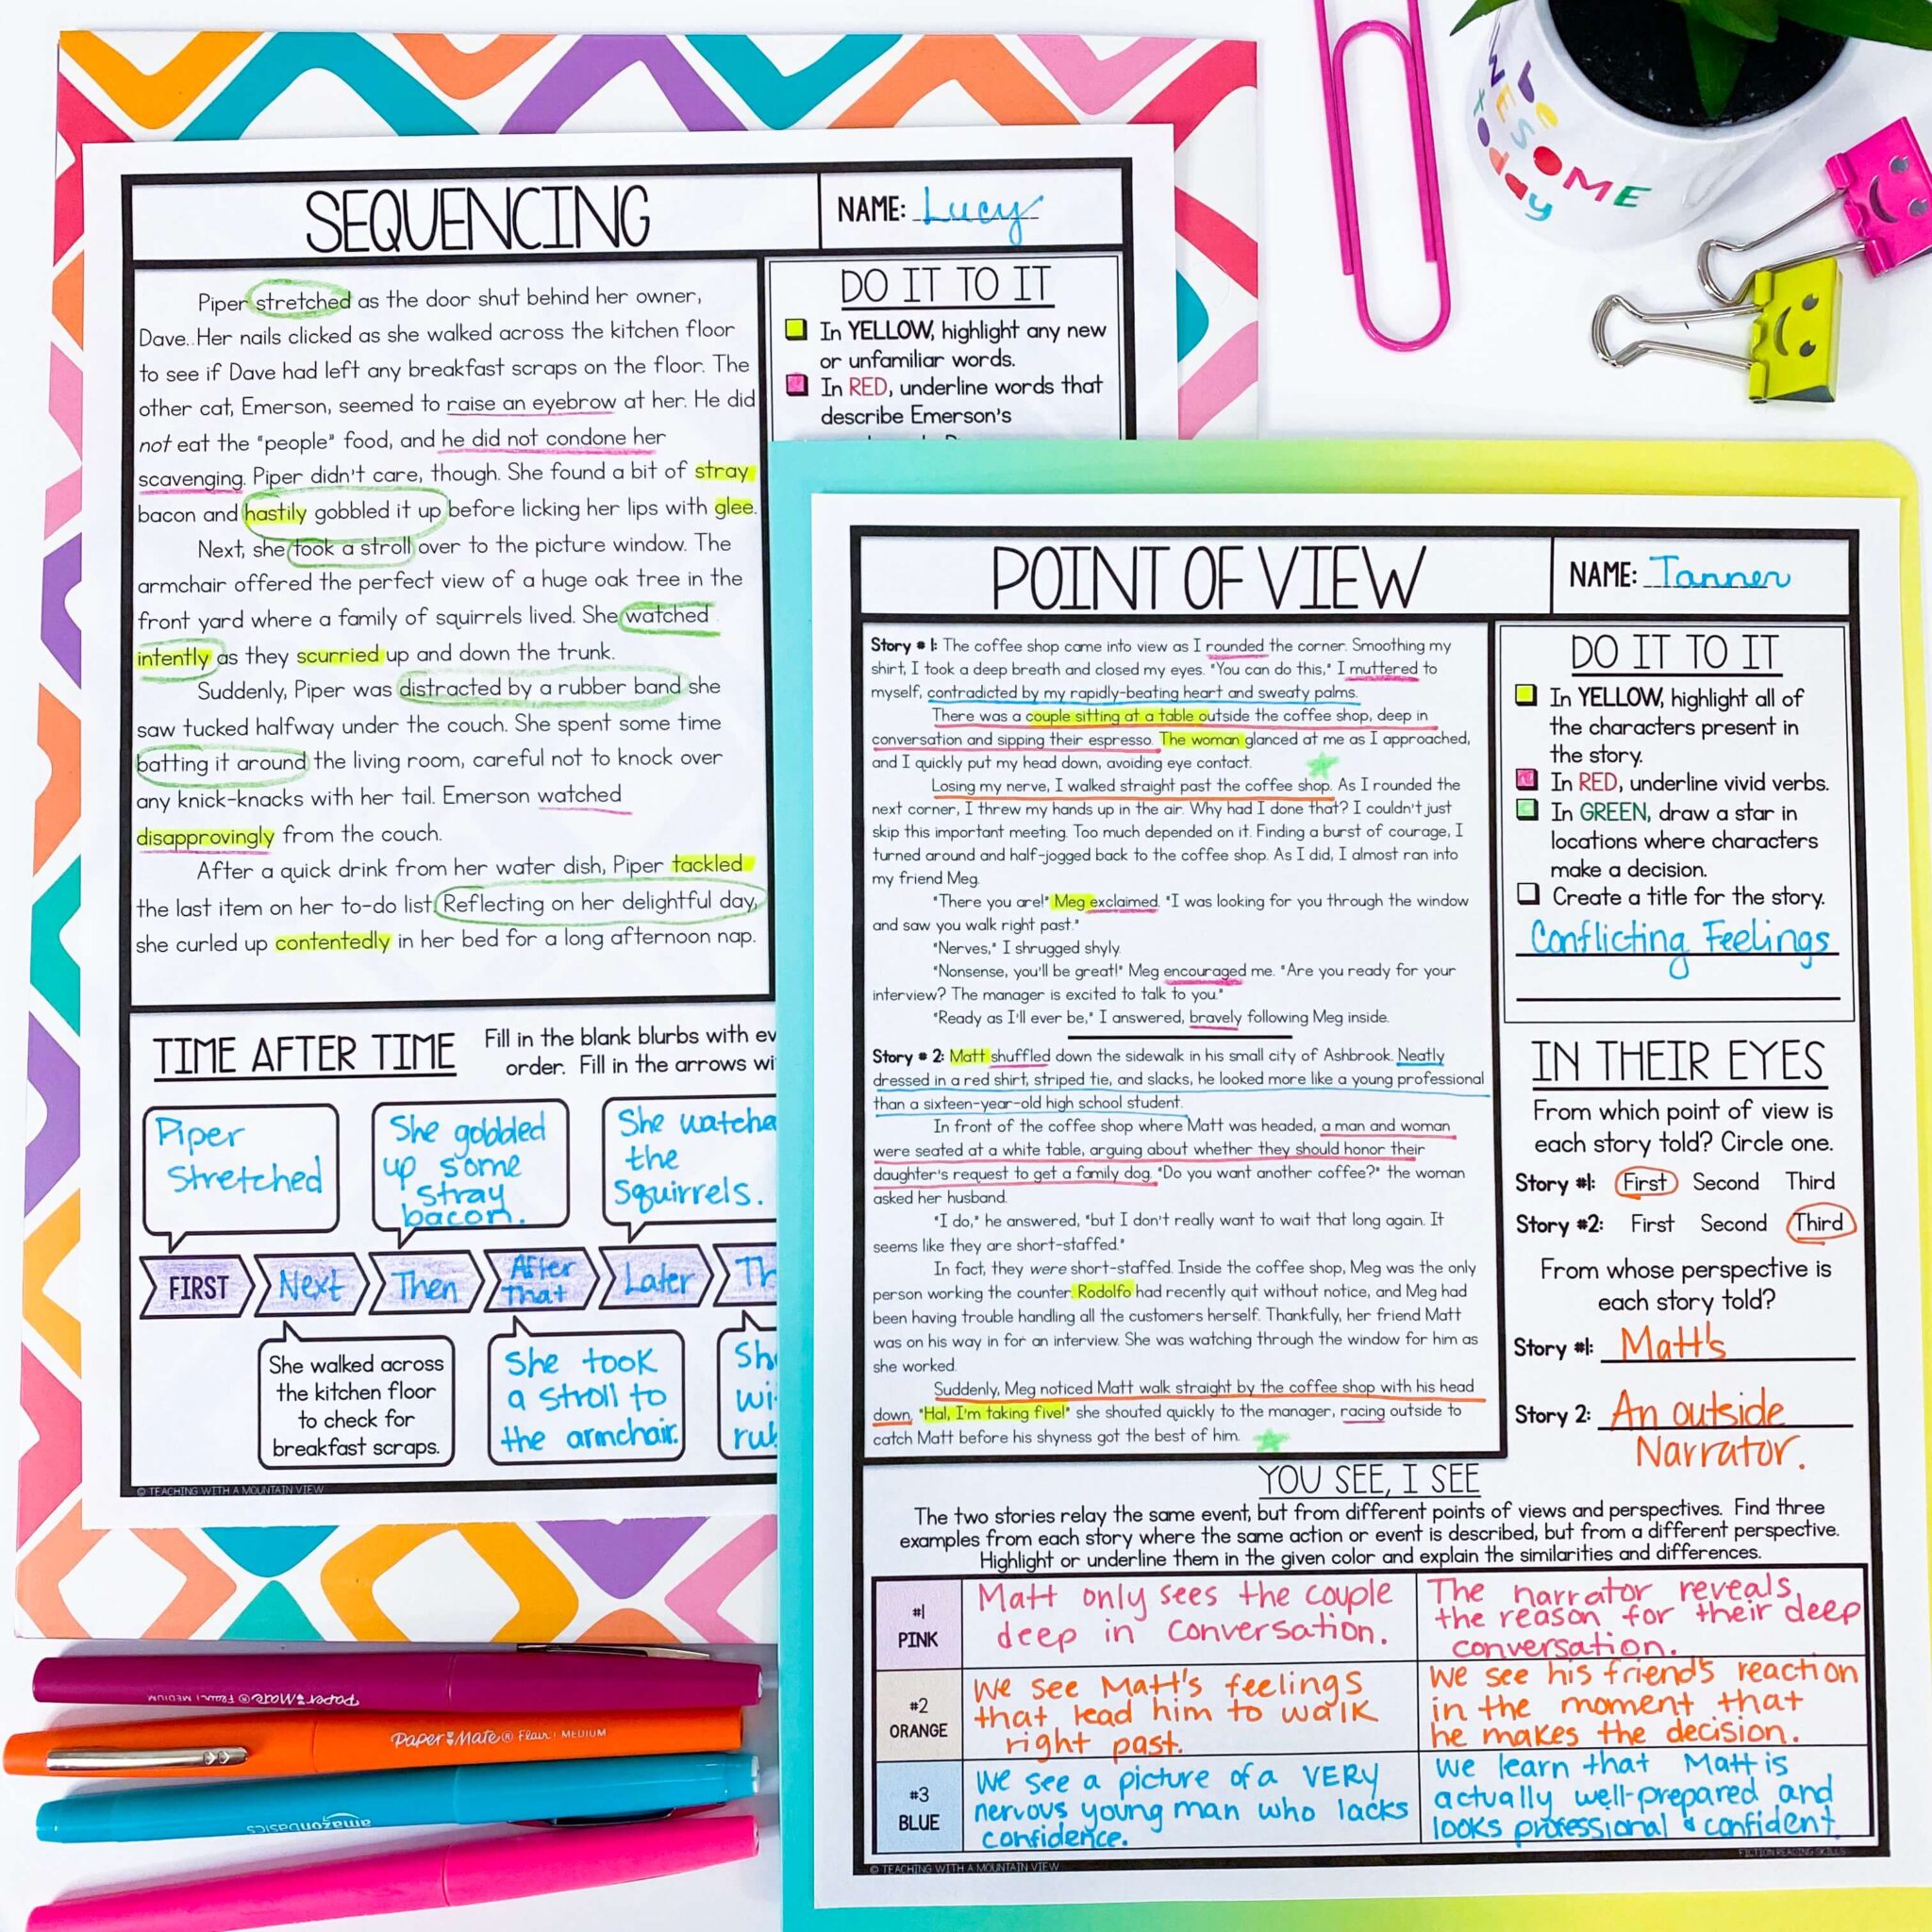 SEQUENCING
NAME: Lucy
Piper stretched as the door shut behind her owner,
Dave. Her nails clicked as she walked across the kitchen floor
to see if Dave had left any breakfast scraps on the floor. The
other cat, Emerson, seemed to raise an eyebrow at her. He did
not eat the "people" food, and he did not condone her
scavenging. Piper didn't care, though. She found a bit of stray
bacon and hastily gobbled it up before licking her lips with glee.
Next, she took a stroll over to the picture window. The
armchair offered the perfect view of a huge oak tree in the
front yard where a family of squirrels lived. She watched
intently as they scurried up and down the trunk.
Suddenly, Piper was distracted by a rubber band she
saw tucked halfway under the couch. She spent some time
batting it around the living room, careful not to knock over
any knick-knacks with her tail. Emerson watched
disapprovingly from the couch.
After a quick drink from her water dish, Piper tackled
the last item on her to-do list. Reflecting on her delightful day,
she curled up contentedly in her bed for a long afternoon nap.
DO IT TO IT
In YELLOW, highlight any new
or unfamiliar words.
In RED, underline words that
describe Emerson's
TIME AFTER TIME
Fill in the blank blurbs with ev
order. Fill in the arrows wi
Piper
Stretched
She gobbled
up some
stray
bacon.
She watche
the
Squirrels.
FIRST
Next
Then
After
that
Later
Th
She walked across
the kitchen floor
to check for
breakfast scraps.
She took
a stroll to
the armchair.
Sh
wi
rub
© TEACHING WITH A MOUNTAIN VIEW
be
AWESOME
today
POINT OF VIEW
NAME: Tanner
Story # 1: The coffee shop came into view as I rounded the corner. Smoothing my
shirt, I took a deep breath and closed my eyes. "You can do this," I muttered to
myself, contradicted by my rapidly-beating heart and sweaty palms.
There was a couple sitting at a table outside the coffee shop, deep in
conversation and sipping their espresso. The woman glanced at me as I approached,
and I quickly put my head down, avoiding eye contact.
Losing my nerve, I walked straight past the coffee shop. As I rounded the
next corner, I threw my hands up in the air. Why had I done that? I couldn't just
skip this important meeting. Too much depended on it. Finding a burst of courage, I
turned around and half-jogged back to the coffee shop. As I did, I almost ran into
my friend Meg.
"There you are!" Meg exclaimed. "I was looking for you through the window
and saw you walk right past."
"Nerves," I shrugged shyly.
"Nonsense, you'll be great!" Meg encouraged me. "Are you ready for your
interview? The manager is excited to talk to you."
"Ready as I'll ever be," I answered, bravely following Meg inside.
Story # 2: Matt shuffled down the sidewalk in his small city of Ashbrook. Neatly
dressed in a red shirt, striped tie, and slacks, he looked more like a young professional
than a sixteen-year-old high school student.
In front of the coffee shop where Matt was headed, a man and woman
were seated at a white table, arguing about whether they should honor their
daughter's request to get a family dog. "Do you want another coffee?" the woman
asked her husband.
"I do," he answered, "but I don't really want to wait that long again. It
seems like they are short-staffed."
In fact, they were short-staffed. Inside the coffee shop, Meg was the only
person working the counter. Rodolfo had recently quit without notice, and Meg had
been having trouble handling all the customers herself. Thankfully, her friend Matt
was on his way in for an interview. She was watching through the window for him as
she worked.
Suddenly, Meg noticed Matt walk straight by the coffee shop with his head
down. "Hal, I'm taking five!" she shouted quickly to the manager, racing outside to
catch Matt before his shyness got the best of him.
DO IT TO IT
In YELLOW, highlight all of
the characters present in
the story.
In RED, underline vivid verbs.
In GREEN, draw a star in
locations where characters
make a decision.
Create a title for the story.
Conflicting Feelings
IN THEIR EYES
From which point of view is
each story told? Circle one.
Story #1: First Second Third
Story #2: First Second Third
From whose perspective is
each story told?
Story #1: Matt's
Story 2: An outside
Narrator.
YOU SEE, I SEE
The two stories relay the same event, but from different points of views and perspectives. Find three
examples from each story where the same action or event is described, but from a different perspective.
Highlight or underline them in the given color and explain the similarities and differences.
#1
PINK
Matt only sees the couple
deep in conversation.
The narrator reveals
the reason for their deep
conversation.
#2
ORANGE
We see Matt's feelings
that lead him to walk
right past.
We see his friend's reaction
in the moment that
he makes the decision.
#3
BLUE
We see a picture of a VERY
nervous young man who lacks
confidence.
we learn that Matt is
actually well-prepared and
looks professional & confident.
© TEACHING WITH A MOUNTAIN VIEW
FICTION READING SKILLS
Paper Mate® Flair | MEDIUM
Paper Mate® Flair | MEDIUM
amazonbasics